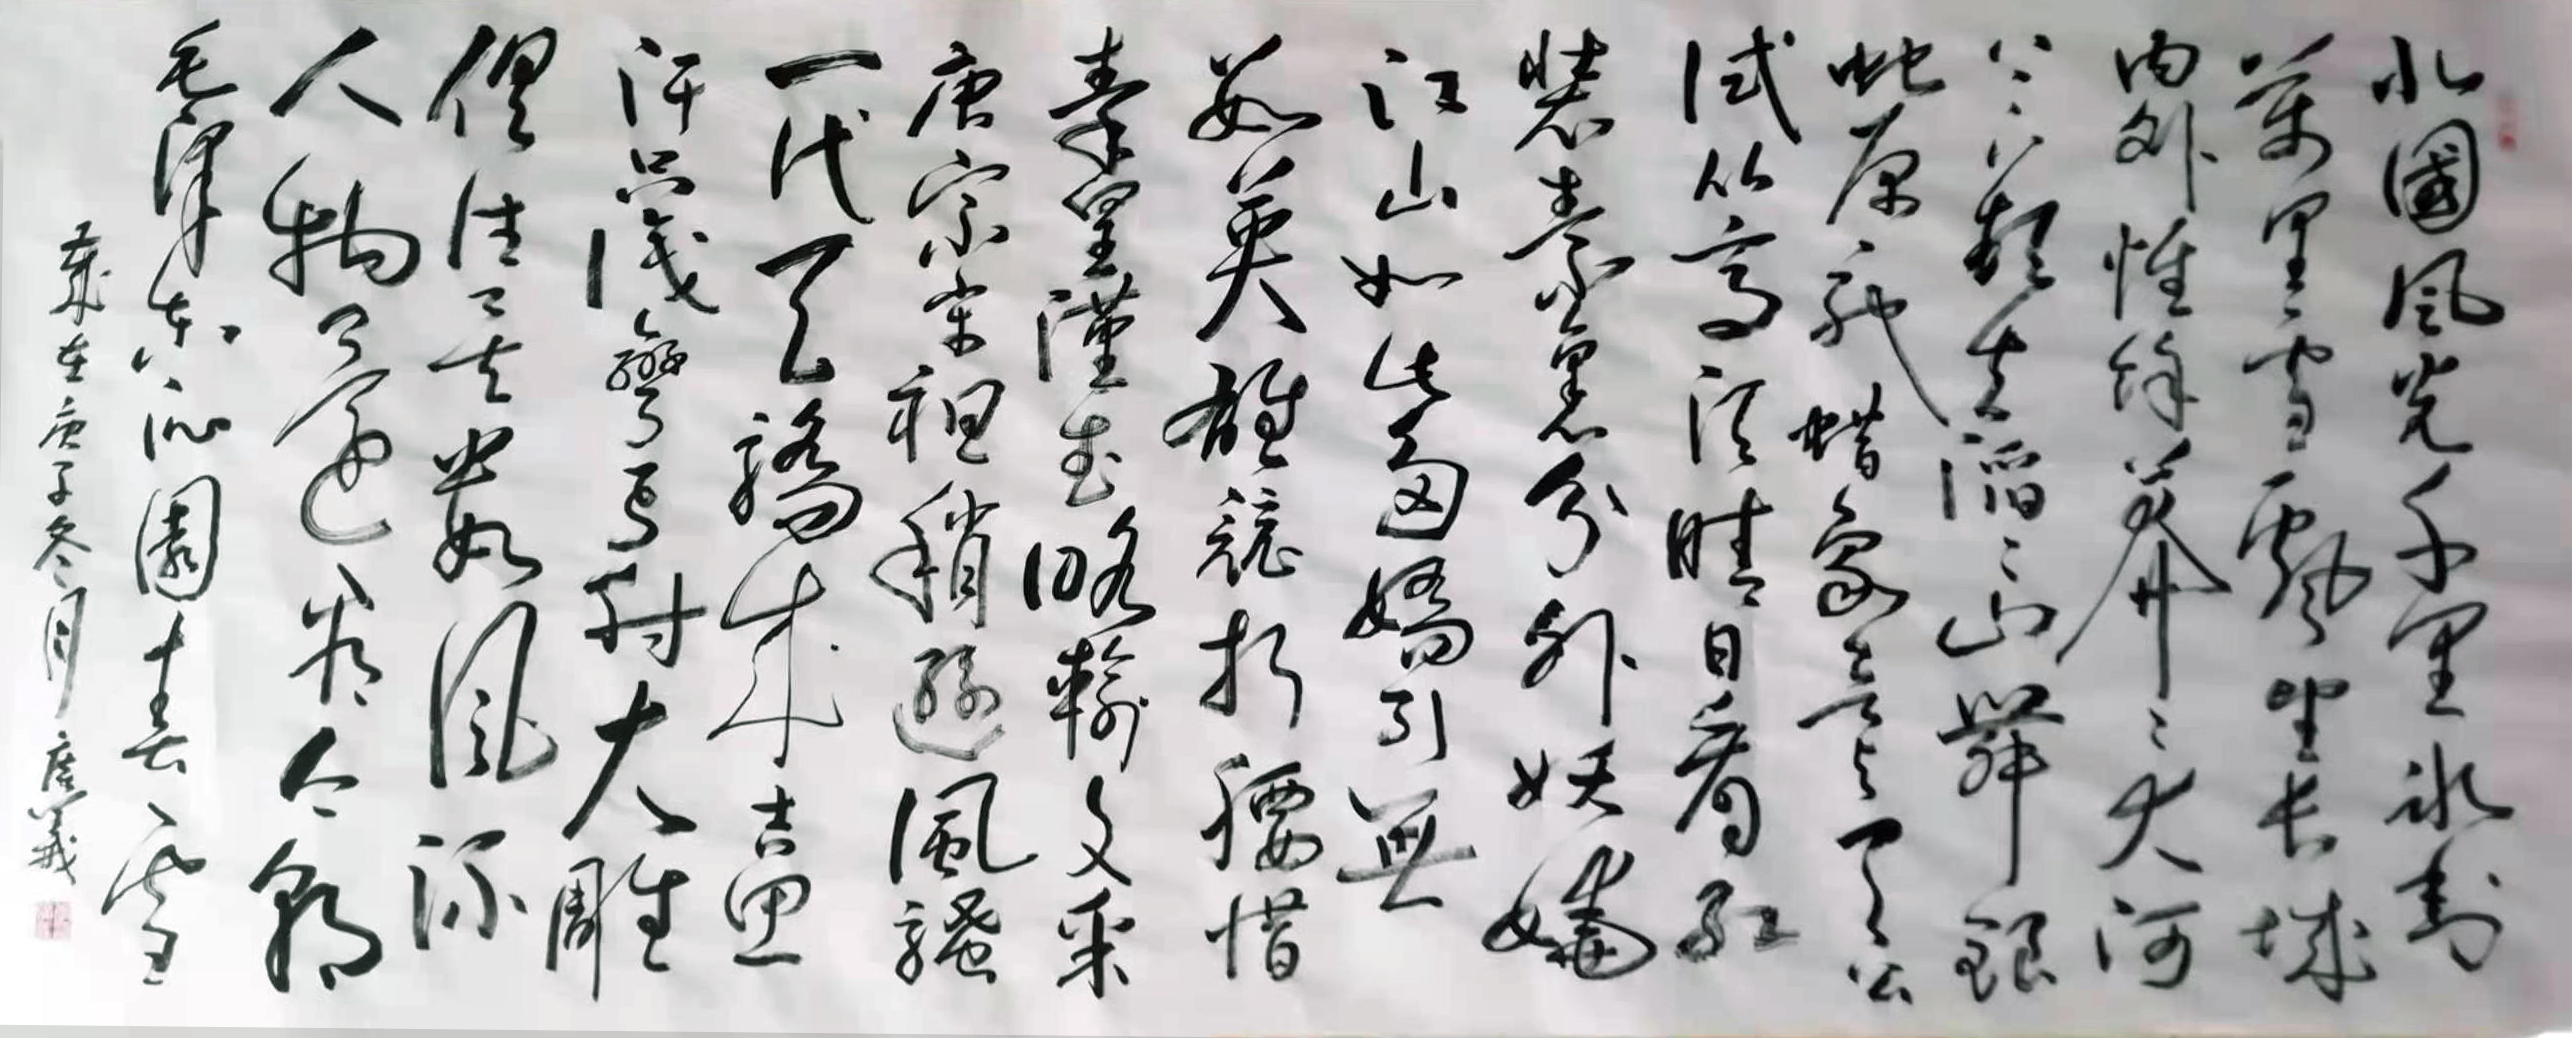 北國風光千里冰封
萬里雪飄望長城
内外惟餘莽〻大河
上下頓失滔〻山舞銀
蛇原馳蜡象与天公
試比高須晴日看紅
裝素裹分外妖嬈
江山如此多嬌引無
數英雄競折腰惜
秦皇漢武略輸文采
唐宗宋祖稍遜風騷
一代天驕成吉思
汗只識彎弓射大雕
俱往矣數風流
人物還看今朝
毛澤東沁園春雪
歲在庚子冬月